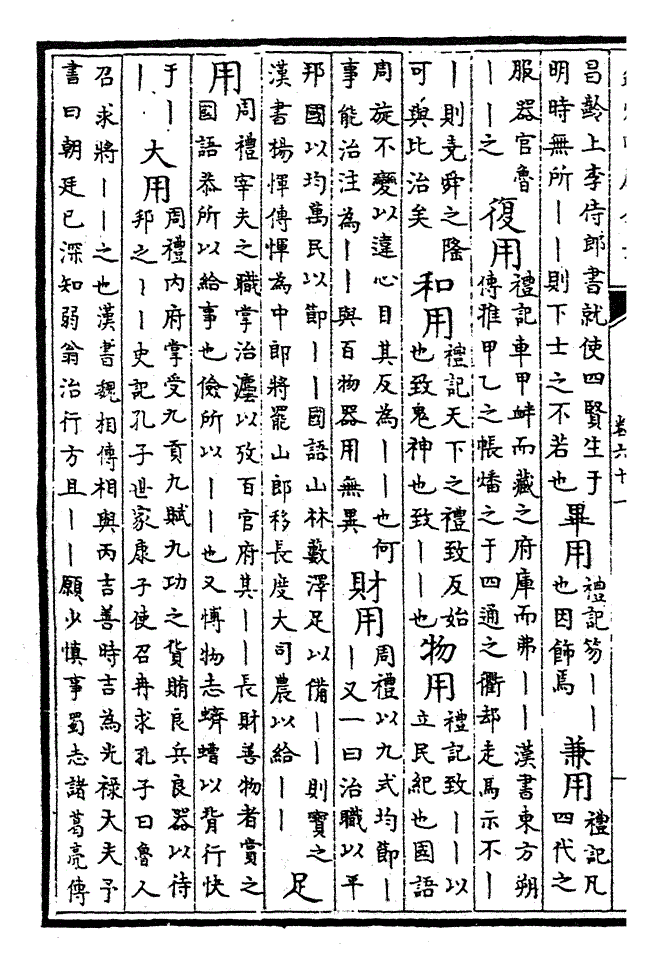 卷六十一
昌齡上李侍郎書就使四賢生于
明時無所丨丨則下士之不若也
畢用
禮記笏丨丨
也因飾焉
兼用
禮記凡
四代之
服器官魯
丨丨之
復用
禮記車甲衅而藏之府庫而弗丨丨漢書東方朔
傳推甲乙之帳燔之于四通之衢却走馬示不丨
丨則堯舜之隆
可與比治矣
和用
禮記天下之禮致反始
也致鬼神也致丨丨也
物用
禮記致丨丨以
立民紀也國語
周旋不變以違心目其反為丨丨也何
事能治注為丨丨與百物器用無異
財用
周禮以九式均節丨
丨又一曰治職以平
邦國以均萬民以節丨丨國語山林藪澤足以備丨丨則寶之
漢書楊惲傳惲為中郎將罷山郎移長度大司農以給丨丨
足
用
周禮宰夫之職掌治灋以攷百官府其丨丨長財善物者賞之
國語恭所以給事也儉所以丨丨也又博物志蠐螬以背行快
于丨
丨
大用
周禮內府掌受九貢九賦九功之貨賄良兵良器以待
邦之丨丨史記孔子世家康子使召冉求孔子曰魯人
召求將丨丨之也漢書魏相傳相與丙吉善時吉為光祿大夫予
書曰朝廷已深知弱翁治行方且丨丨願少慎事蜀志諸葛亮傳